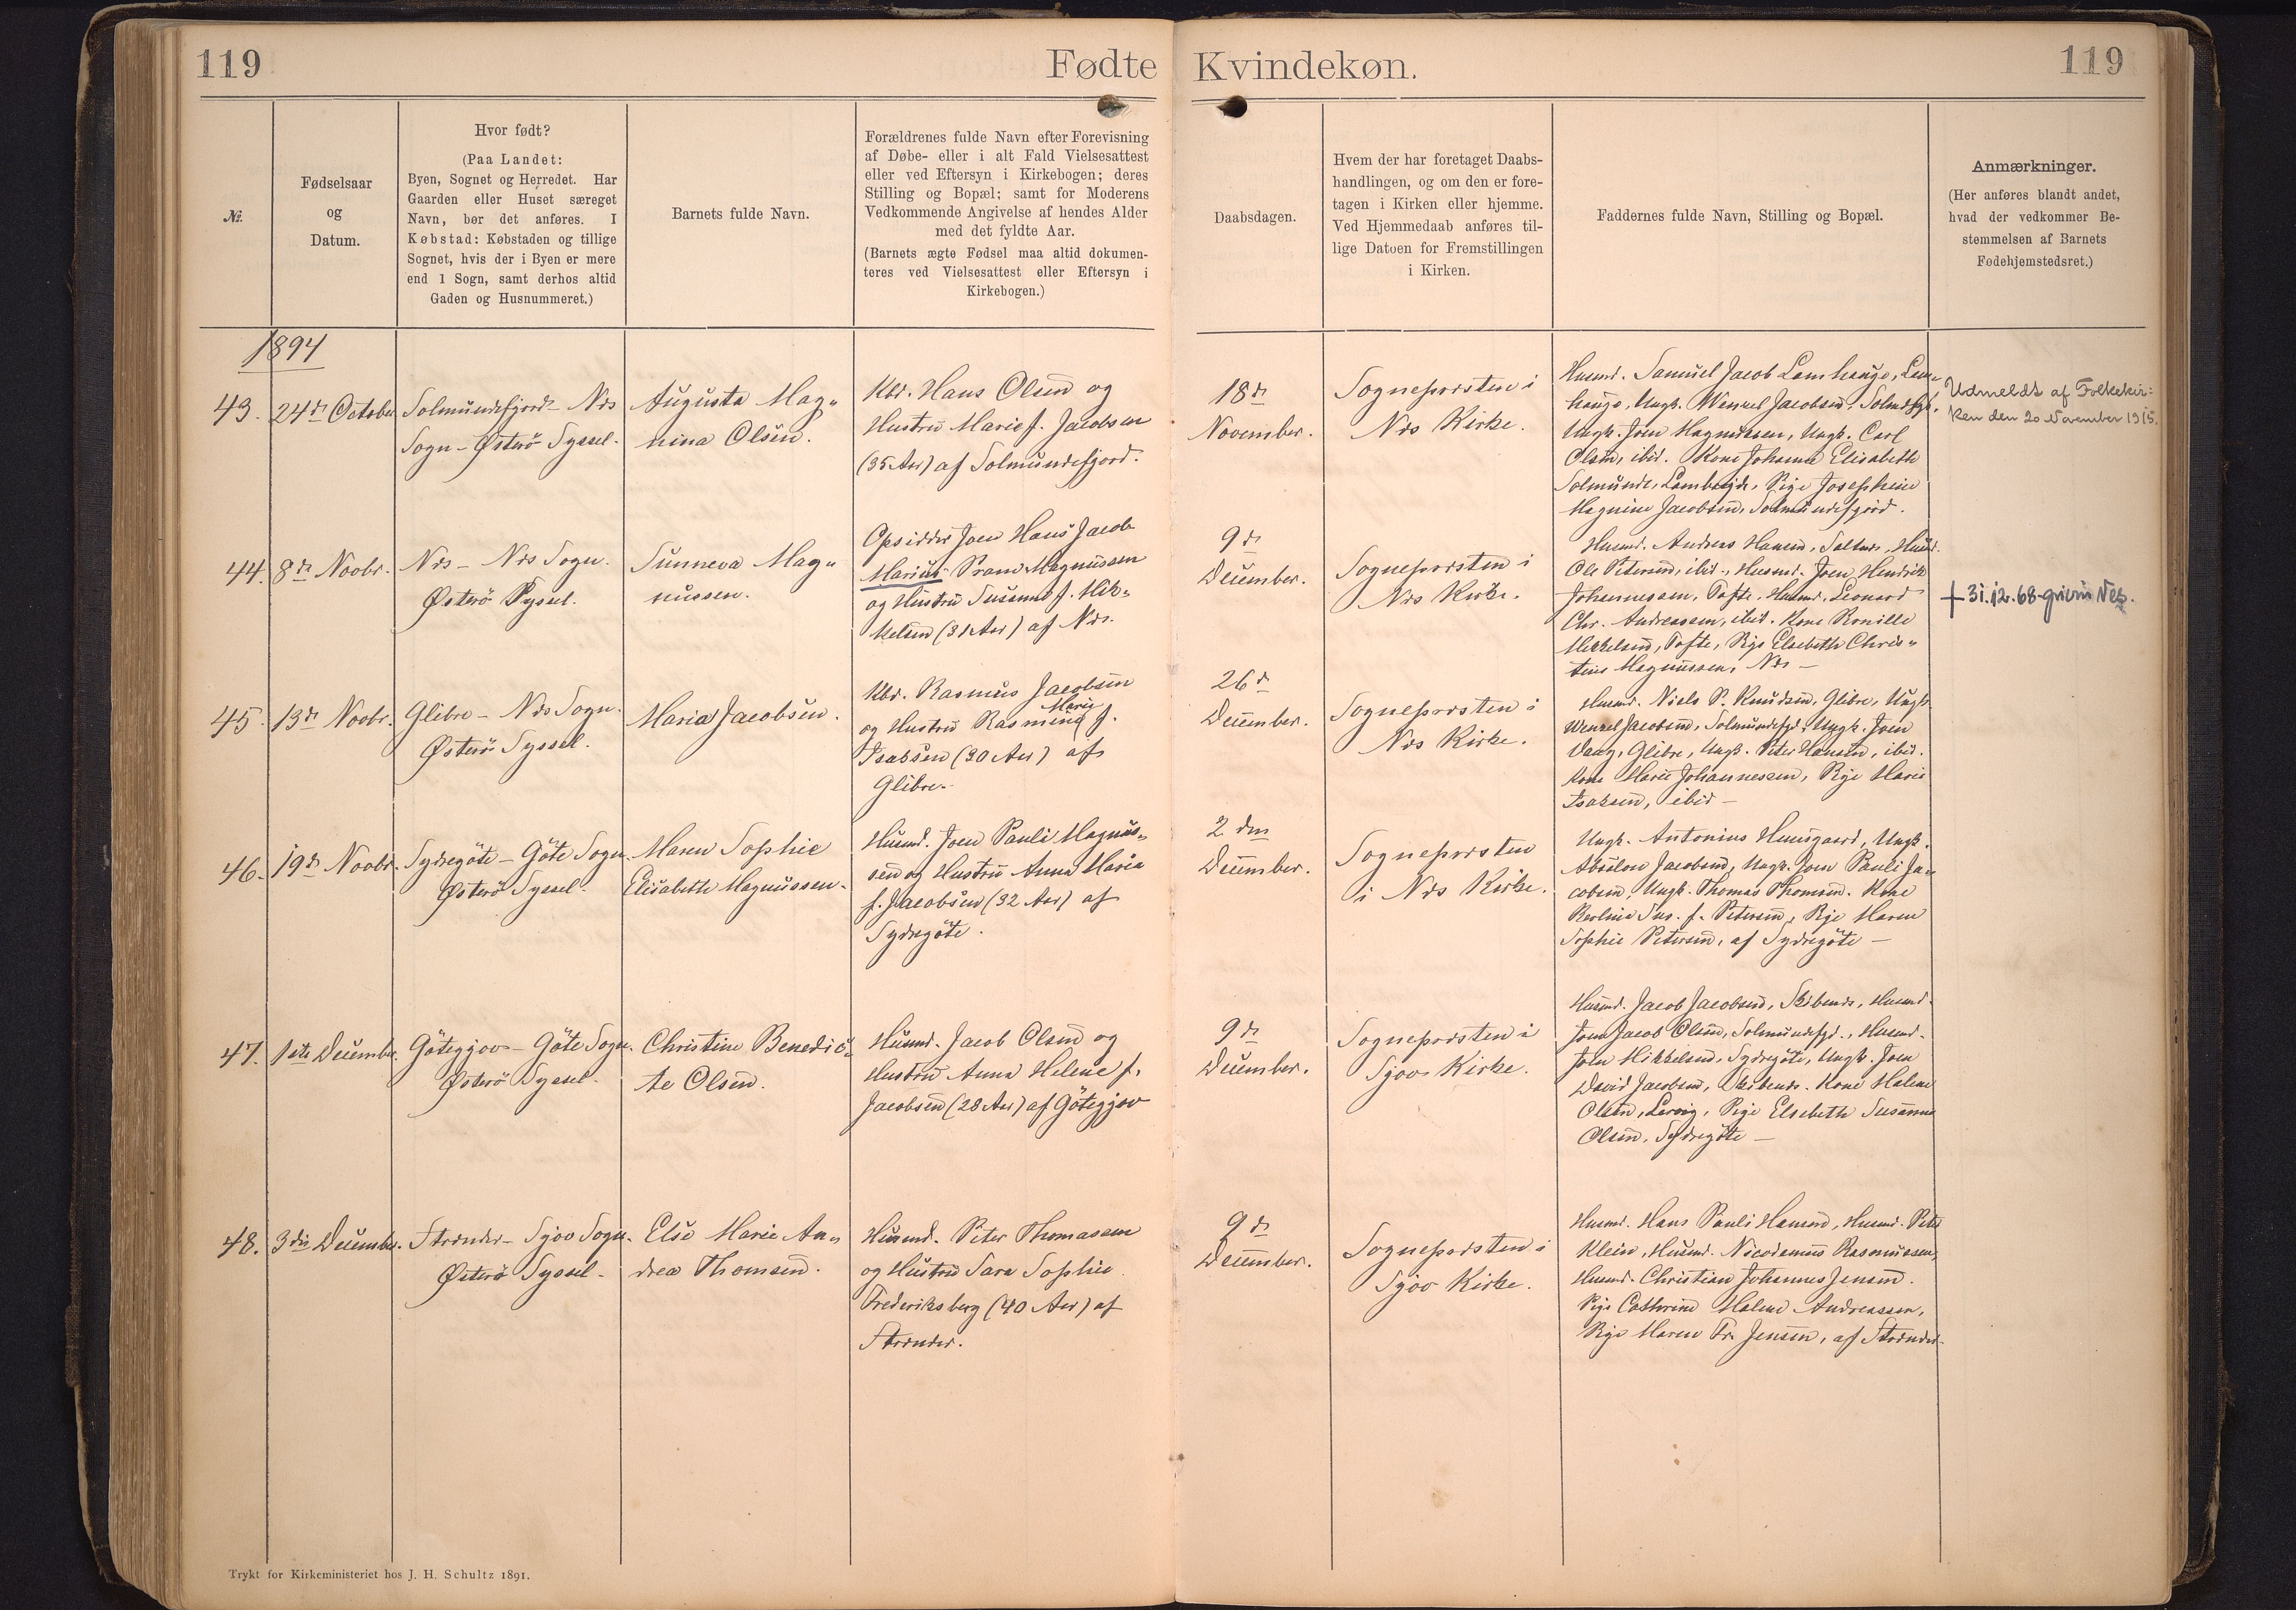 119
Fødte
Kvindekøn.
119
№.
Fødselsaar
og
Datum.
Hvor født?
(Paa Landet:
Byen, Sognet og Herredet. Har
Gaarden eller Huset særeget
Navn, bør det anføres. I
Købstad: Købstaden og tillige
Sognet, hvis der i Byen er mere
end 1 Sogn, samt derhos altid
Gaden og Husnummeret.)
Barnets fulde Navn.
Forældrenes fulde Navn efter Forevisning
af Døbe- eller i alt Fald Vielsesattest
eller ved Eftersyn i Kirkebogen; deres
Stilling og Bopæl; samt for Moderens
Vedkommende Angivelse af hendes Alder
med det fyldte Aar.
(Barnets ægte Fødsel maa altid dokumen-
teres ved Vielsesattest eller Eftersyn i
Kirkebogen.)
Daabsdagen.
Hvem der har foretaget Daabs-
handlingen, og om den er fore-
tagen i Kirken eller hjemme.
Ved Hjemmedaab anføres til-
lige Datoen for Fremstillingen
i Kirken.
Faddernes fulde Navn, Stilling og Bopæl.
Anmærkninger.
(Her anføres blandt andet,
hvad der vedkommer Be-
stemmelsen af Barnets
Fødehjemstedsret.)
1894
43.
24de October
Solmundefjord - Næs
Sogn - Østerö Syssel.
Augusta Mag-
nina Olsen.
Kbr. Hans Olsen og
Hustru Marie f. Jacobsen
(35 Aar) af Solmundefjord.
18de
November.
Sognepræsten i
Næs Kirke.
Husmd. Samuel Jacob Lamhauge, Lam-
hauge, Ungk. Wenzel Jacobsen, Solmdfjd.
Ungk. Joen Magnussen, Ungk. Carl
Olsen, ibid. Kone Johanne Elisabeth
Solmunde, Lambegjde, Pige Josephine
Magnine Jacobsen, Solmundefjord.
Udmeldt af Folkekir-
ken den 20 November 1915.
44.
8de Novbr.
Næs - Næs Sogn.
Østerö Syssel.
Sunneva Mag-
nussen.
Opsidder Joen Hans Jacob
Marius Magnussen
og Hustru Susanne f. Mik-
kelsen (31 Aar) af Næs.
9de
December.
Sognepræsten i
Næs Kirke.
Husmd. Andreas Hansen, Saltnæs, Husmd.
Ole Petersen, ibid., Husmd. Joen Hendrik
Johannessen, Tofte, Husmd. Leonard
Chr. Andreassen, ibid. Kone Ronille
Mikkelsen, Tofte, Pige Elsebeth Chris-
tine Magnussen, Næs -
+ 31.12.68 grivin Nes.
45.
13de Novbr.
Glibre - Næs Sogn.
Østerö Syssel.
Maria Jacobsen.
Kbr. Rasmus Jacobsen
og Hustru Rasmine Marie f.
Isaksen (30 Aar) af
Glibre.
26de
December.
Sognepræsten i
Næs Kirke.
Husmd. Niels P. Knudsen, Glibre, Ungk.
Wenzel Jacobsen, Solmundefjd., Ungk. Joen
Vang, Glibre, Ungk. Peter Hansen, ibid.
Kone Marie Johannessen, Pige Marie
Isaksen, ibid -
46.
19de Novbr.
Sydregöte - Göte Sogn.
Østerö Syssel.
Maren Sophie
Elisabeth Magnussen.
Husmd. Joen Pauli Magnus-
sen og Hustru Anna Maria
f. Jacobsen (32 Aar) af
Sydregöte.
2 den
December.
Sognepræsten
i Næs Kirke.
Ungk. Antonius Huusgaard, Ungk.
Absalon Jacobsen, Ungk. Joen Pauli Ja-
cobsen, Ungk. Thomas Thomsen. Kone
Sus. f. Petersen, Pige Maren
Sophie Petersen, af Sydregöte -
47.
1ste December.
Götegjov - Göte Sogn.
Østerö Syssel.
Christine Benedic-
te Olsen.
Husmd. Jacob Olsen og
Hustru Anna Helene f.
Jacobsen (28 Aar) af Götegjov
9de
December.
Sognepræsten i
Sjov Kirke.
Husmd. Jacob Jacobsen, Skibenæs, Husmd.
Joen Jacob Olsen, Solmundefjd., Husmd.
Joen Mikkelsen, Sydregöte, Ungk. Joen
David Jacobsen, Skibenæs. Kone Malene
Olsen, Lervig, Pige Elsebeth Susanne
Olsen, Sydregöte -
48.
3die December.
Strænder - Sjov Sogn.
Østerö Syssel.
Else Marie An-
drea Thomsen.
Husmd. Peter Thomassen
og Hustru Sara Sophie
Frederiksberg (40 Aar) af
Strænder.
9de
December.
Sognepræsten i
Sjov Kirke.
Husmd. Hans Pauli Hansen, Husmd. Peter
Klein, Husmd. Nicodemus Rasmussen,
Husmd. Christian Johannes Jensen.
Pige Cathrine Malene Andreassen,
Pige Maren Fr. Jensen, af Strænder.
Trykt for Kirkeministeriet hos J. H. Schultz 1891.